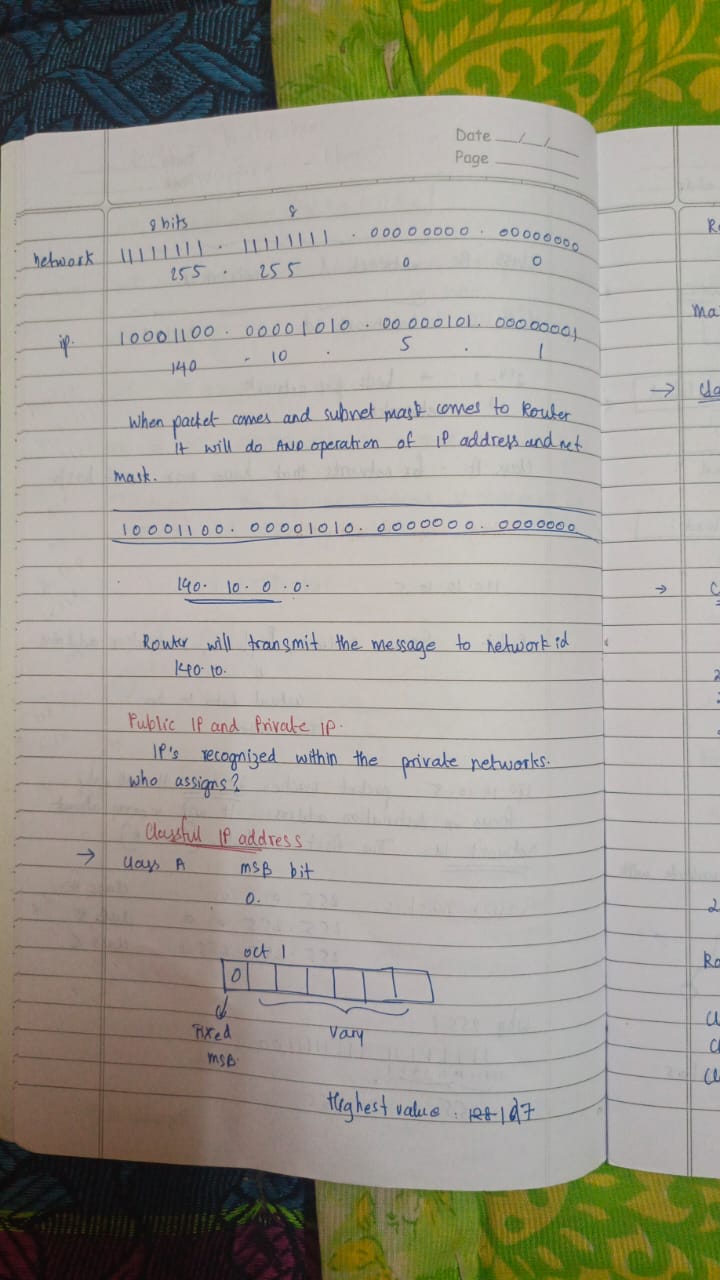 Date __/__/__
Page
8 bits 8
network 11111111 . 11111111 . 00000000 . 00000000
255 . 255 0 0
ip. 10001100 . 00001010 . 00000101 . 00000001
140 . 10 . 5 . 1
When packet comes and subnet mask comes to Router
It will do AND operation of IP address and net
mask.
10001100. 00001010. 0000000. 0000000
140. 10. 0 .0.
Router will transmit the message to network id
140.10.
Public IP and Private IP.
IP's recognized within the private networks.
who assigns?
Classful IP address
→ Class A MSB bit
0.
oct 1
0
Fixed Vary
MSB.
Highest value : 127
Ro
Ma
→ Cla
→ C
2
2
Ro
Cl
C
Cl